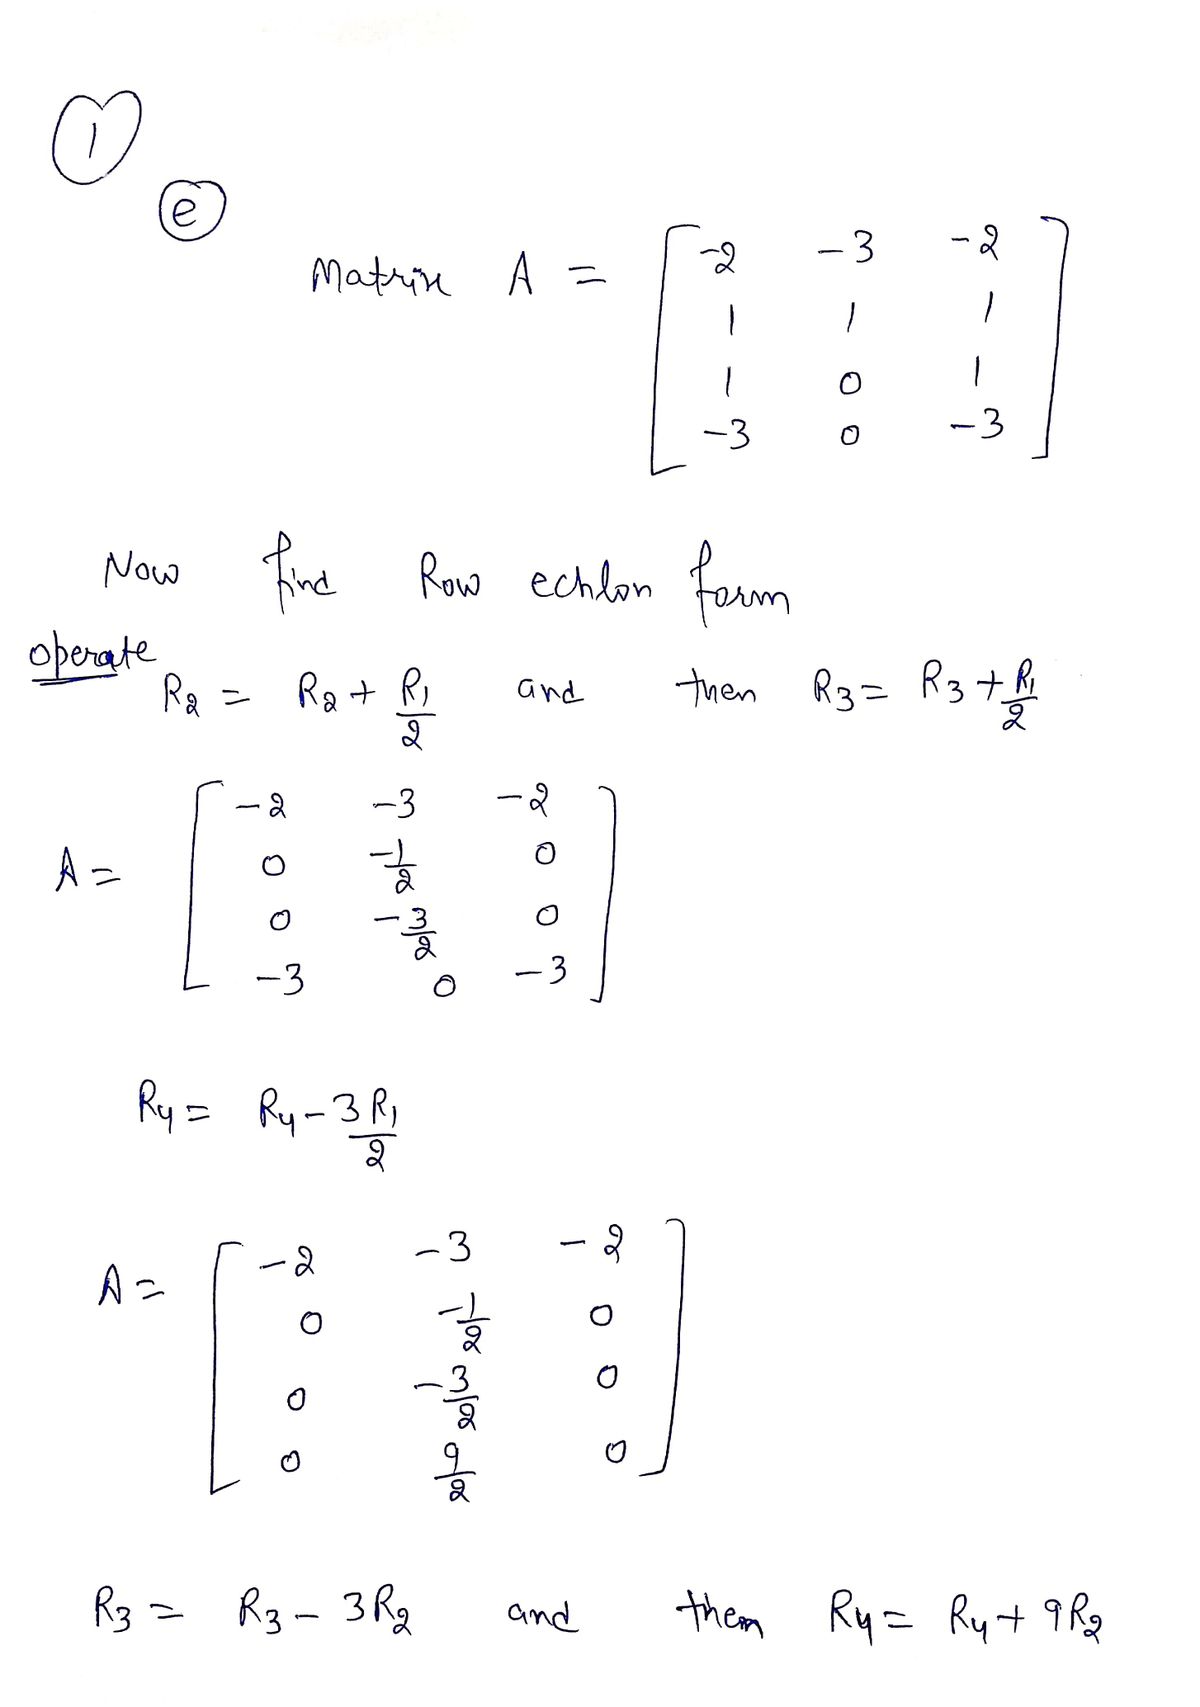 1
e
Matrix A = [ -2 -3 -2
1 1 1
1 0 1
-3 0 -3 ]
Now find Row echlon form
operate
R2 = R2 + R1/2 and then R3 = R3 + R1/2
A = [ -2 -3 -2
0 -1/2 0
0 -3/2 0
-3 0 -3 ]
R4 = R4 - 3R1/2
A = [ -2 -3 -2
0 -1/2 0
0 -3/2 0
0 9/2 0 ]
R3 = R3 - 3R2 and them R4 = R4 + 9R2